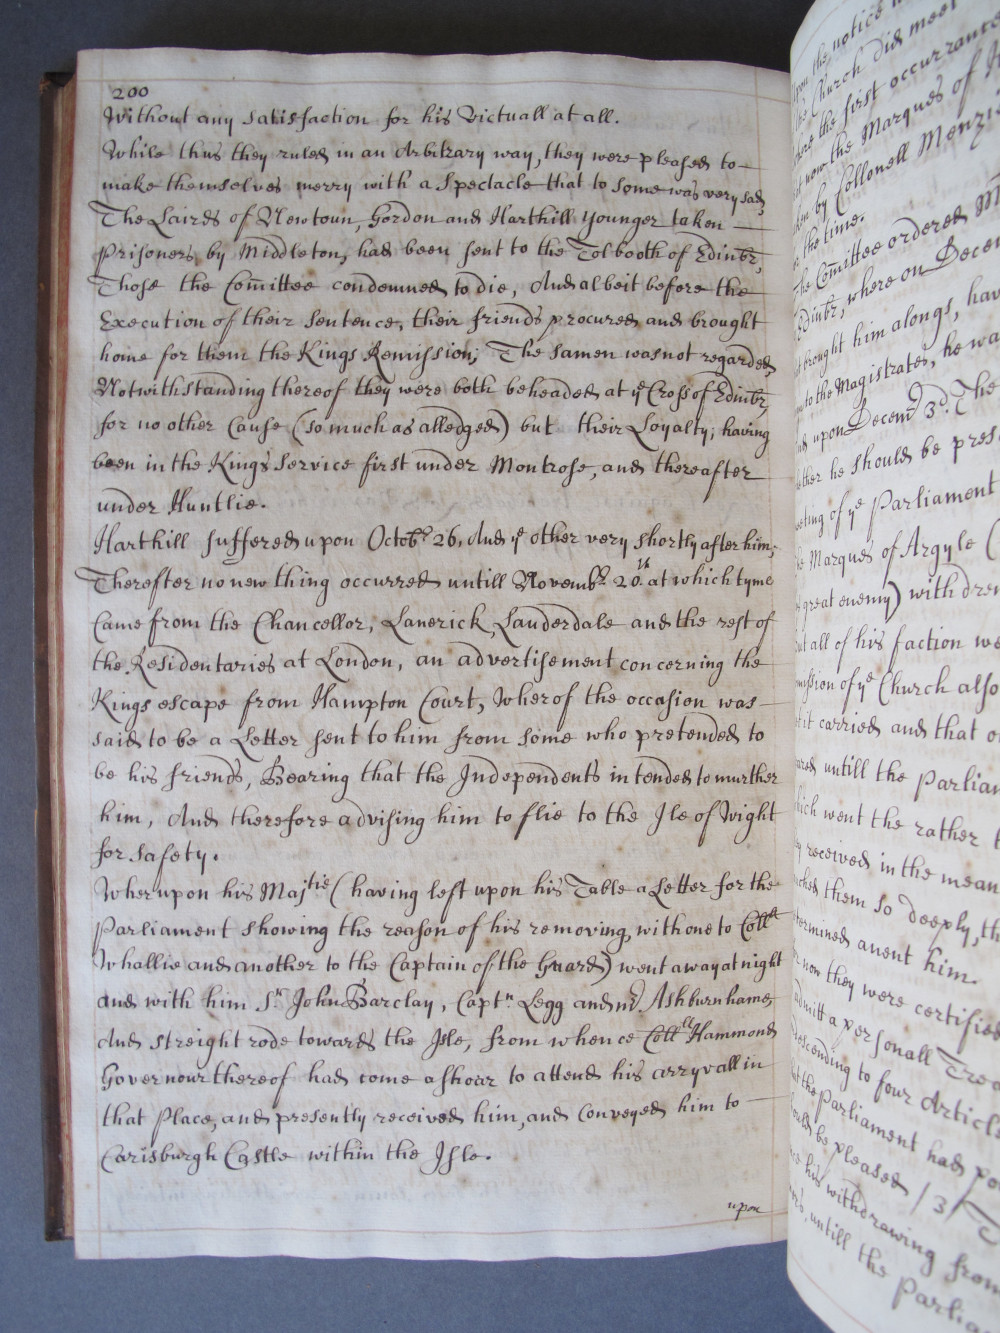 200
Without any satisfaction for his Victuall at all.
While thus they ruled in an Arbitrary way, they were pleased to
make themselves merry with a Spectacle that to some was very sad,
The Lairds of Newtoun, Gordon and Harthill younger taken
Prisoners by Middleton, had been sent to the Tolbooth of Edinbr,
Those the Com̄ittee condemned to die, And albeit before the
Execution of their Sentence, their friends procured and brought
home for them the Kings Remission; The samen was not regarded,
Notwithstanding thereof they were both beheaded at ye Cross of Edinbr,
for no other Cause (so much as alledged) but their Loyalty; having
been in the Kings Service first under Montrose, and thereafter
under Huntlie.
Harthill suffered upon Octobr 26. And ye other very shortly after him;
Therefter no new thing occurred untill Novembr 20th at which tyme
Came from the Chancellor, Lanerick, Lauderdale and the rest of
the Residentaries at London, an advertisement concerning the
Kings escape from Hampton Court, Wherof the occasion was
said to be a Letter sent to him from some who pretended to
be his friends, Bearing that the Independents intended to murther
him, And therefore advising him to flie to the Ile of Wight
for safety.
Wherupon his Majtie (having left upon his Table a Letter for the
Parliament showing the reason of his removing, with one to Colll
Whallie and another to the Captain of the Guard) went away at night
and with him Sr John Barclay, Captn Legg and mr Ashburnhame,
And streight rode towards the Isle, from whence Colll Hammond
Governour thereof had come ashoar to attend his arryvall in
that Place, and presently received him, and Conveyed him to
Carisburgh Castle within the Isle.
upon
upon the notice
the Church did meet
where the first occurrance
now the Marques of
by Collonell Menzi
the time.
The Com̄ittee ordered
Edinbr, where on Decem
brought him alongs, hav
to the Magistrates, he wa
upon Decemr 3d. The
he should be pres
of ye Parliament
Marques of Argyle (
great enemy) with
all of his faction we
of ye Church also
it carried and that
untill the Parliam
which went the rather
received in the mean
them so deeply, th
anent him.
now they were certified
admitt a personall Trea
descending to four Article
the Parliament had
be pleased /3/ T
his withdrawing from
untill the Parlia